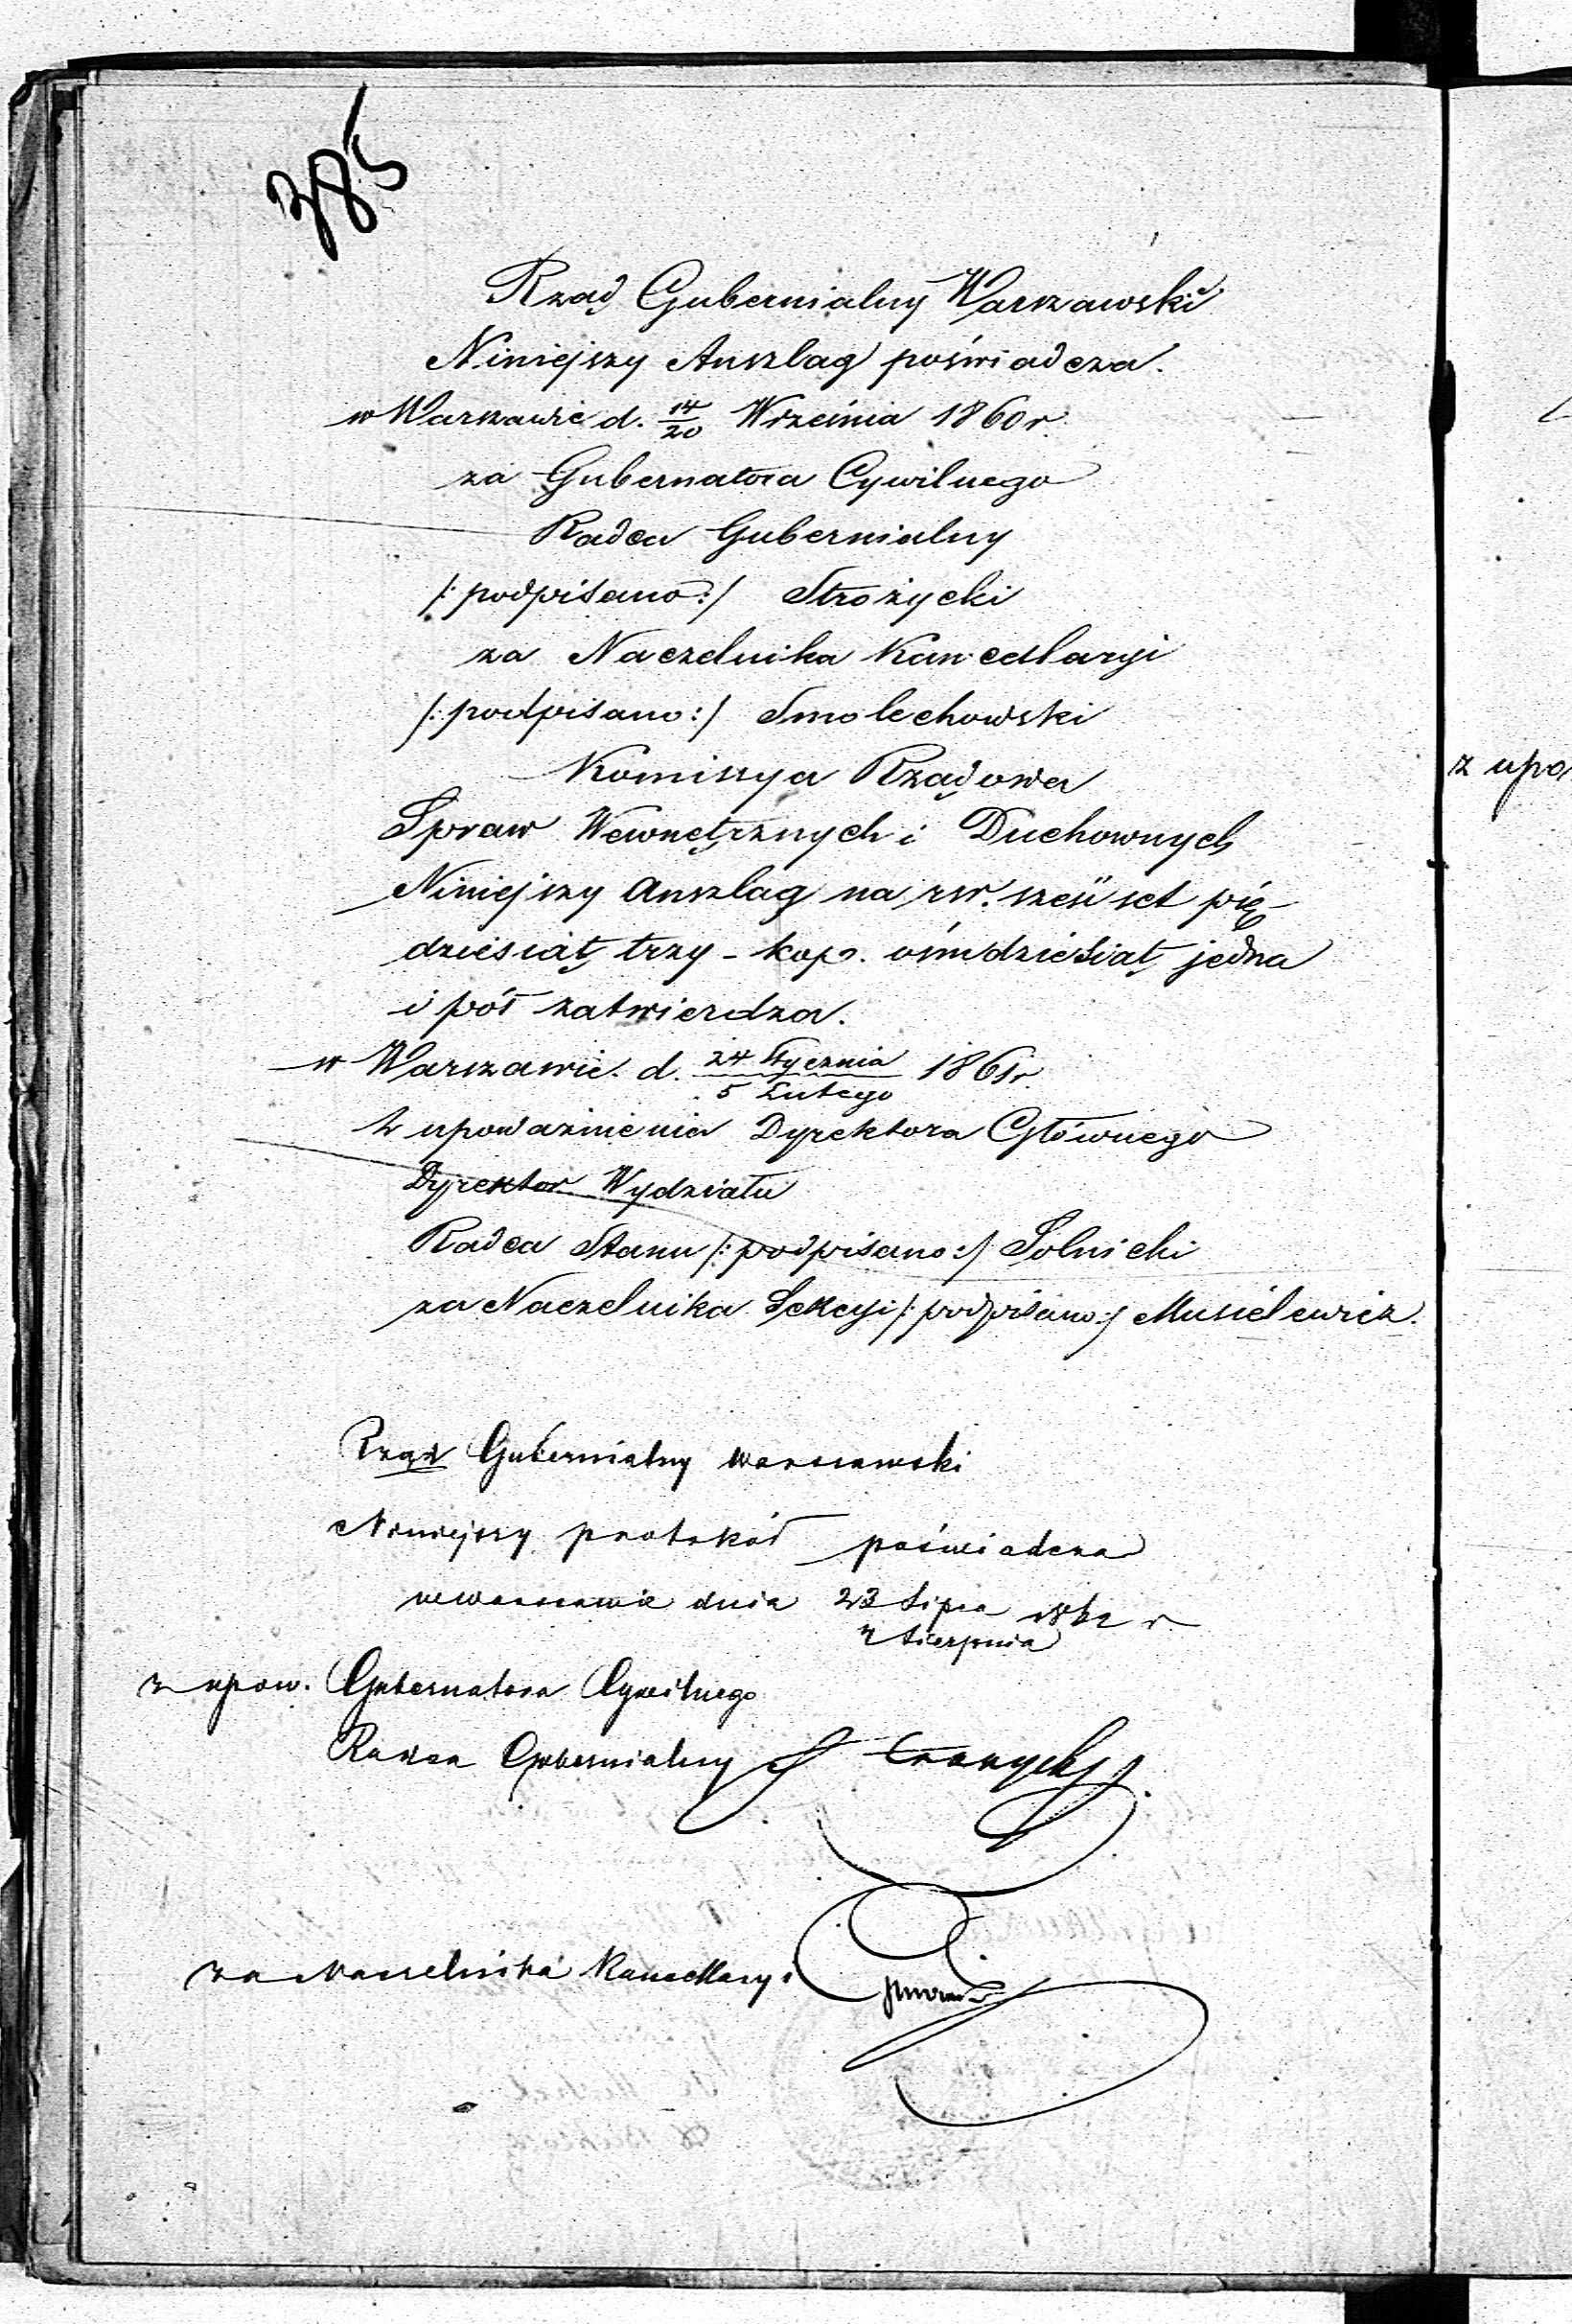 385
Rząd Gubernialny Warszawski
Niniejszy Anszlag poświadcza.
w Warszawie d. 14/20 Września 1860 r.
za Gubernatora Cywilnego
Radca Gubernialny
/: podpisano :/ Strożycki
za Naczelnika Kancellaryi
/: podpisano :/ Smolechowski
Komissya Rządowa
Spraw Wewnętrznych i Duchownych
Niniejszy Anszlag na rsr. sześćset pię-
dziesiąt trzy - kop. ośmdziesiąt jedna
i pół zatwierdza.
w Warszawie. d. 24 Stycznia / 5 Lutego 1861 r.
z upoważnienia Dyrektora Głównego
Dyrektor Wydziału
Radca Stanu /: podpisano :/ Solnicki
za Naczelnika Sekcyi /: podpisano :/ Musielewicz.
Rząd Gubernialny Warszawski
Niniejszy protokół poświadcza
w Warszawie dnia 23 Lipca / 4 Sierpnia 1862 r.
z upow. Gubernatora Cywilnego
Radca Gubernialny
za Naczelnika Kancellaryi
z upo